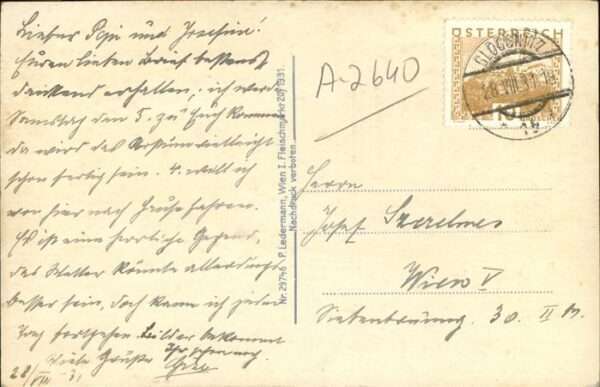 Lieber Pepi und Josefine!
Euren lieben Brief bestens
dankend erhalten, ich werde
Samstag den 5. zu Euch kommen
da wird das vielleicht
schon fertig sein. 4. will ich
von hier nach fahren.
Es ist eine herrliche Gegend,
das Wetter könnte allerdings
besser sein, doch kann ich jeden
Tag fortgehen. Bilder bekommt
Ihr schon noch.
Viele Grüße
28/VIII 31.
Nr. 29746 P. Ledermann, Wien I. Fleischmarkt 20, 1931.
Nachdruck verboten
A-2640
ÖSTERREICH
GLOGGNITZ
VIII.31
10
Herrn
Josef
Wien V
Siebenbrunng. 30. II